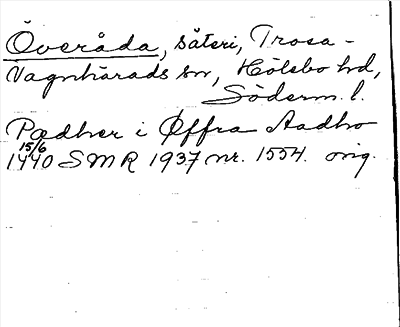 Överåda, säteri, Trosa-
Vagnhärads sn, Hölebo hd,
Söderm. l.
Pædher i Øffra Aadho
15/6
1440 SMR 1937 nr. 1554. orig.